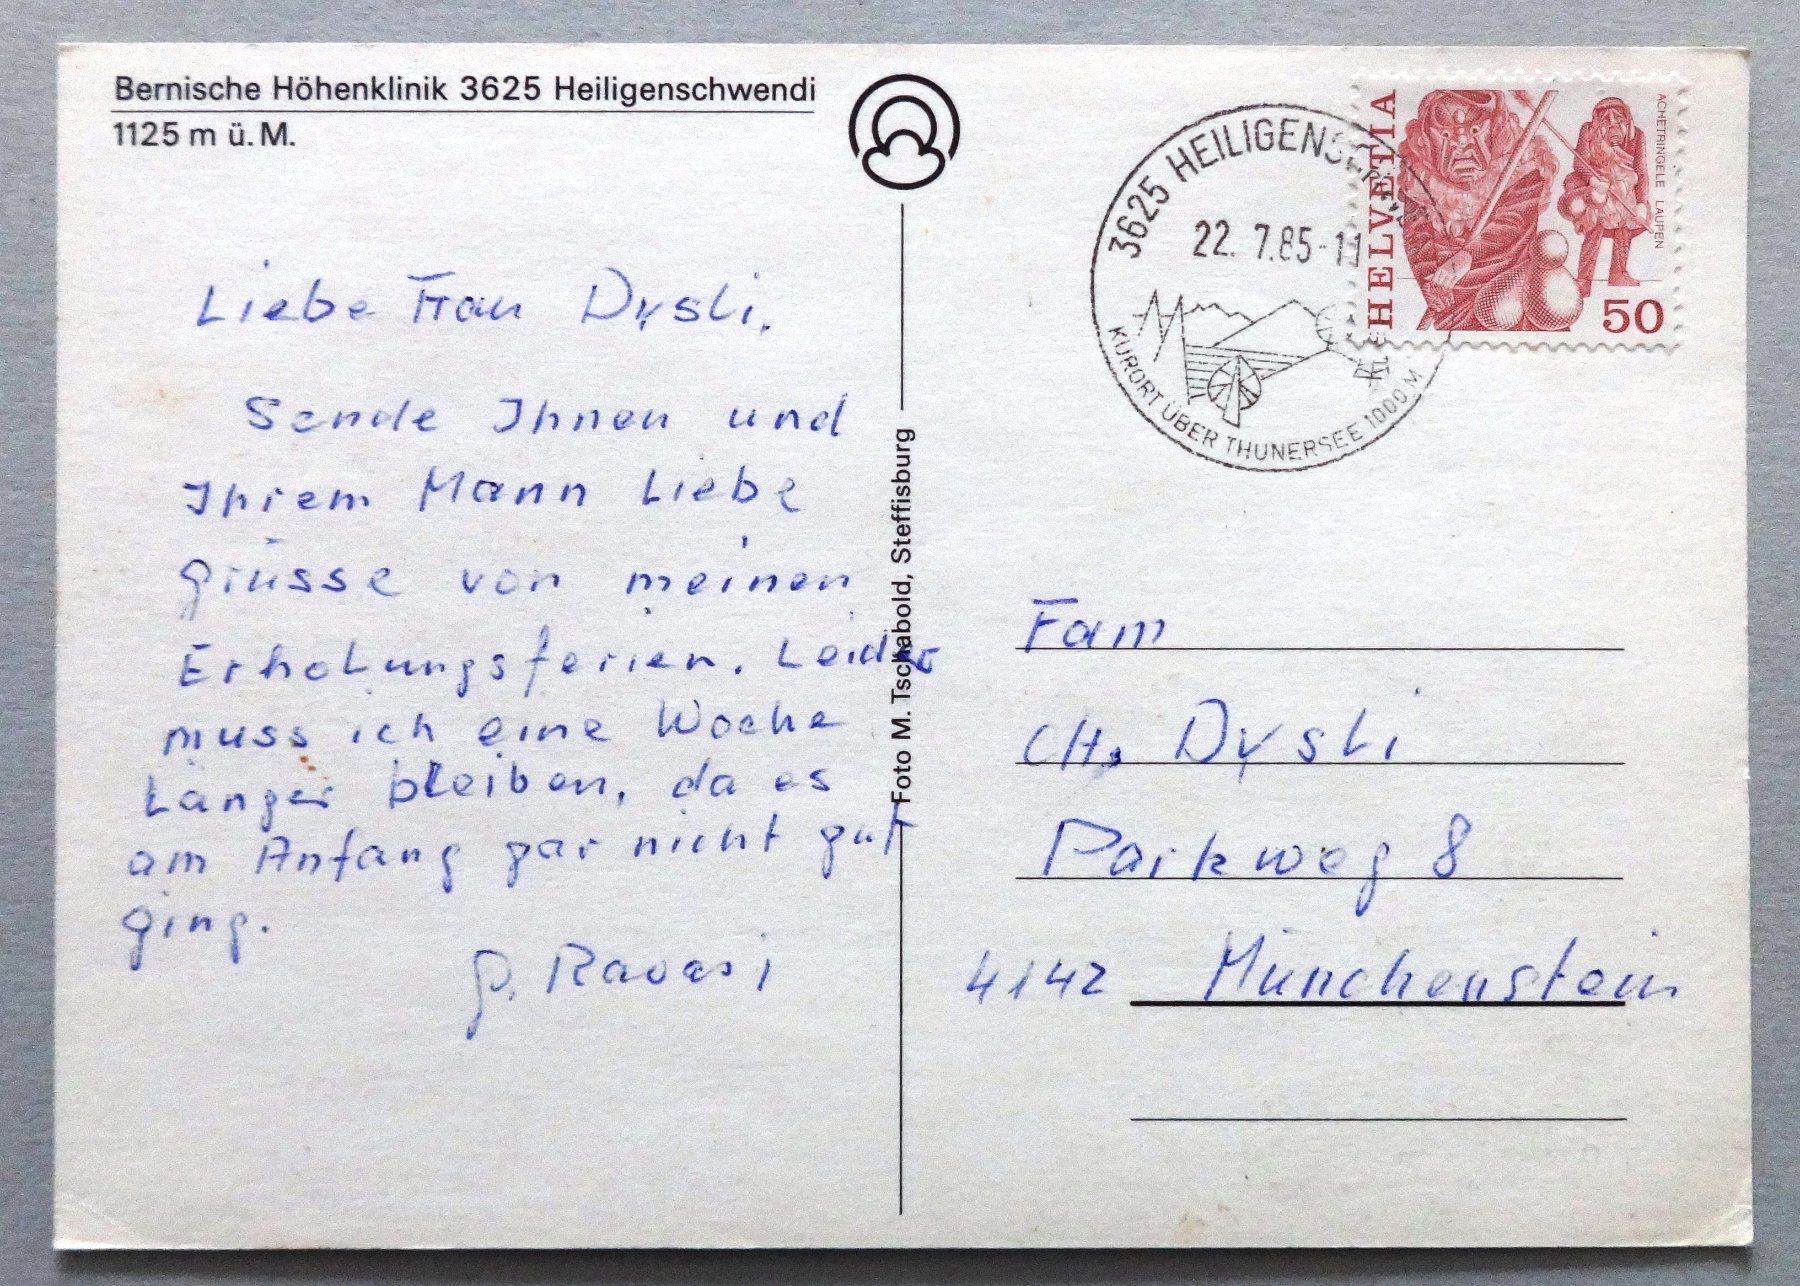 Bernische Höhenklinik 3625 Heiligenschwendi
1125 m ü. M.
Liebe Frau Dysli.
Sende Ihnen und
Ihrem Mann Liebe
Grüsse von meinen
Erholungsferien. Leider
muss ich eine Woche
Länger bleiben, da es
am Anfang gar nicht gut
ging.
Foto M. Tschabold, Steffisburg
3625
22. 7.85-11
KURORT ÜBER THUNERSEE 1000 M
HELVETIA
ACHETRINGELE LAUPEN
50
Fam
CH. Dysli
Parkweg 8
4142 Münchenstein